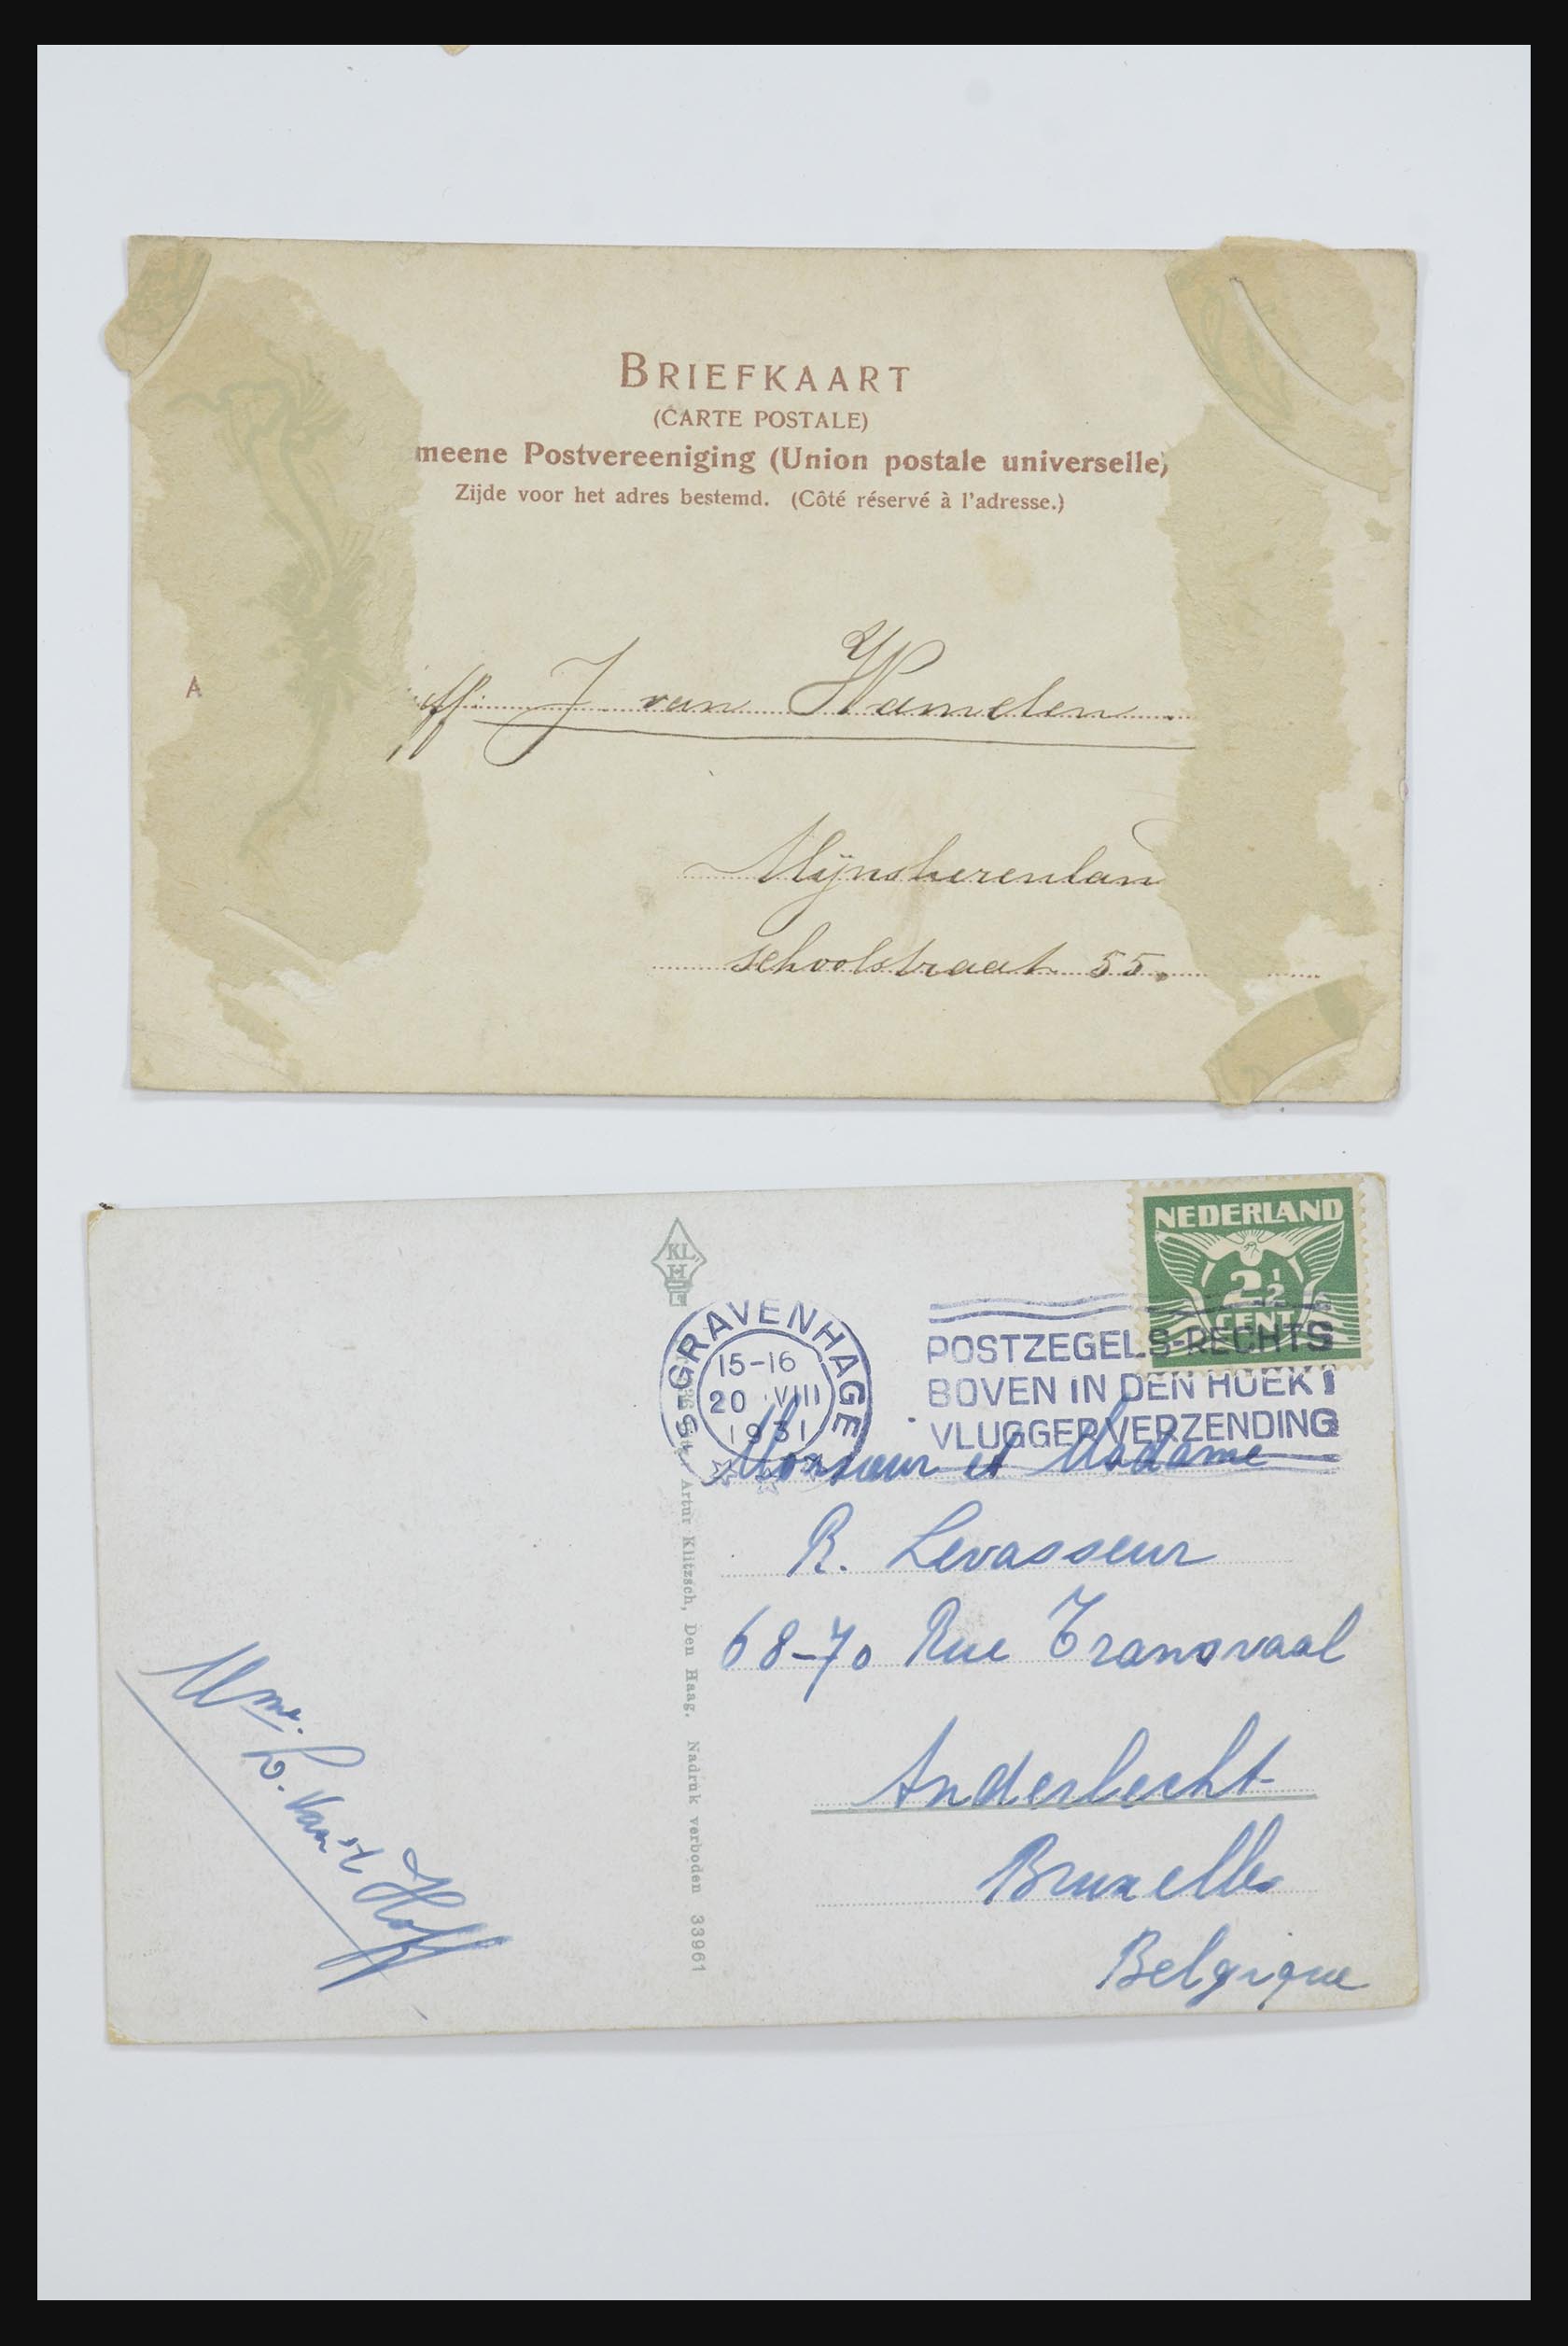 BRIEFKAART
(CARTE POSTALE)
meene Postvereeniging (Union postale universelle)
Zijde voor het adres bestemd. (Côté réservé à l'adresse.)
A
J van Wamelen
Mijnsherenlan
schoolstraat 55.
KL
H
NEDERLAND
2½
CENT
'S-GRAVENHAGE
15-16
20 VIII
1931
POSTZEGELS-RECHTS
BOVEN IN DEN HOEK!
VLUGGER VERZENDING
Monsieur et Madame
R. Levasseur
68-70 Rue Transvaal
Anderlecht
Bruxelles
Belgique
Artur Klitzsch, Den Haag. Nadruk verboden 33961
Mme. L. Van 't Hoff